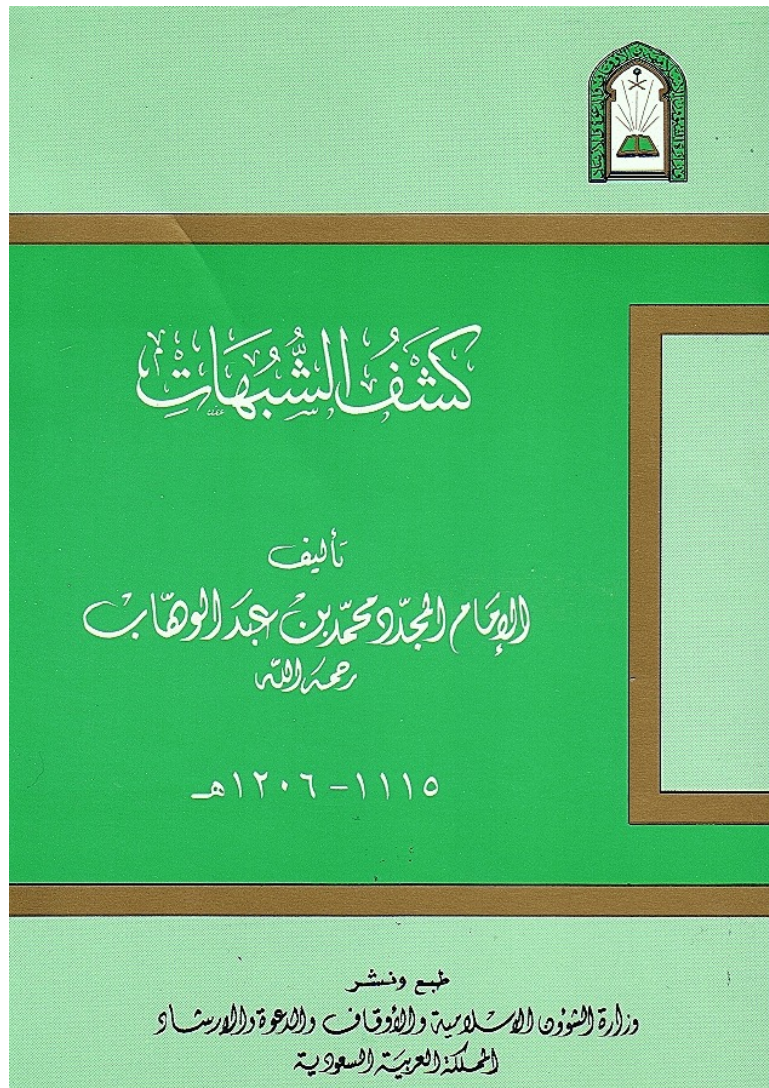 كَشْفُ الشُّبُهَاتِ
تأليف
الإمام المجدّد محمّد بن عبد الوهّاب
رحمه الله
١١١٥ - ١٢٠٦هـ
طبع ونشر
وزارة الشؤون الاسلامية والأوقاف والدعوة والارشاد
المملكة العربية السعودية